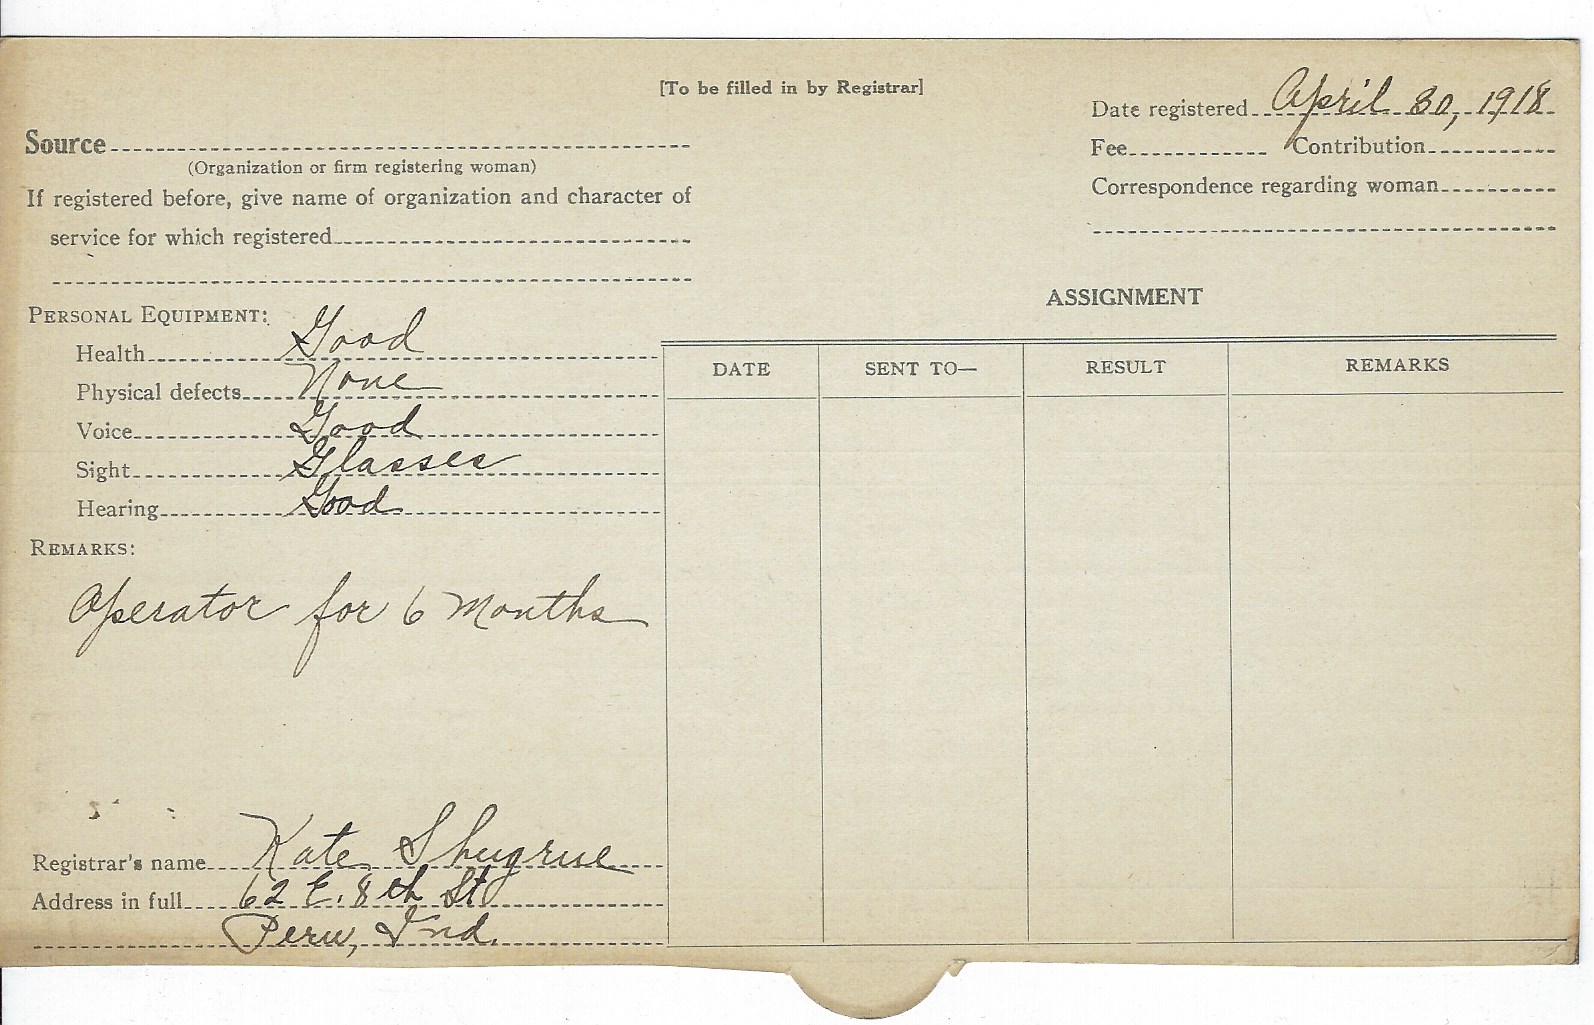 [To be filled in by Registrar]
Date registered April 30, 1918
Source
(Organization or firm registering woman)
Fee Contribution
If registered before, give name of organization and character of
service for which registered
Correspondence regarding woman
PERSONAL EQUIPMENT:
Health Good
Physical defects None
Voice Good
Sight Glasses
Hearing Good
REMARKS:
Operator for 6 Months
Registrar's name Kate Shugrue
Address in full 62 E. 8th St
Peru, Ind.
ASSIGNMENT
DATE SENT TO— RESULT REMARKS